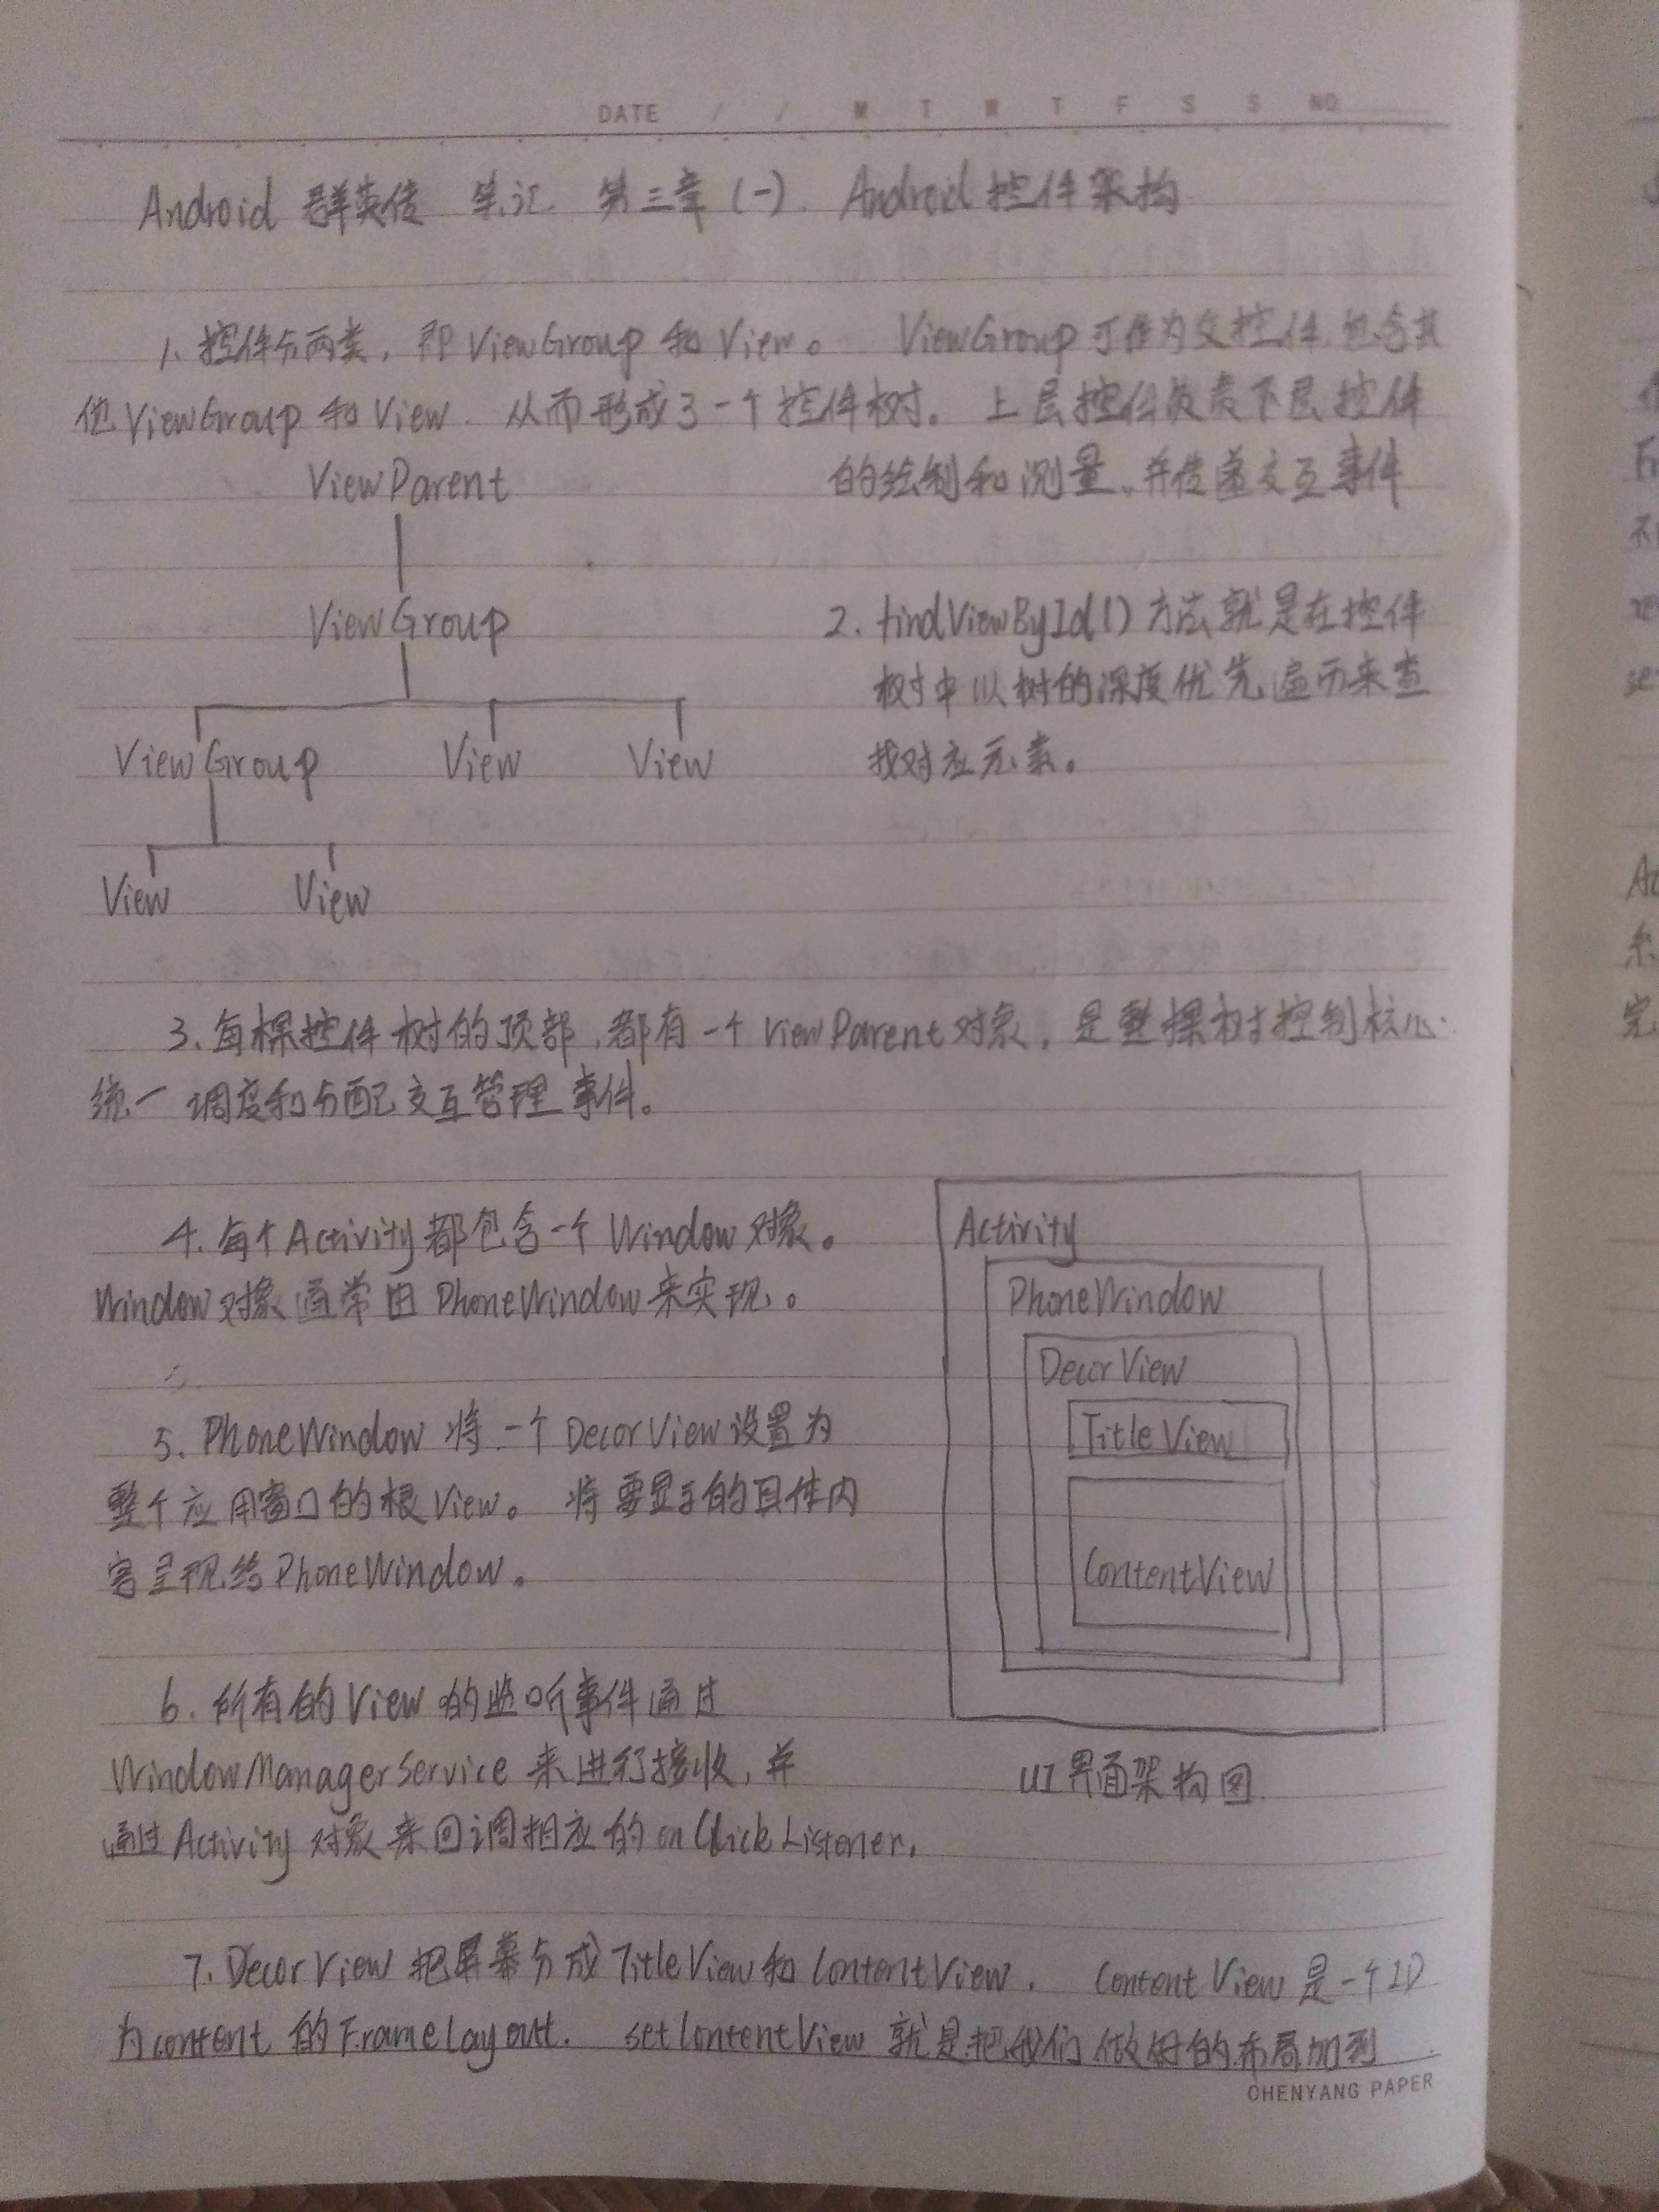 DATE / / M T W T F S S NO
Android 群英传 笔记 第三章(一). Android 控件架构
1. 控件分两类，即 ViewGroup 和 View。 ViewGroup 可作为父控件, 包含其
他 ViewGroup 和 View. 从而形成了一个控件树。上层控件负责下层控件
的绘制和测量,并传递交互事件
ViewParent
ViewGroup
ViewGroup View View
View View
2. findViewById() 方法就是在控件
树中以树的深度优先遍历来查
找对应元素。
3. 每棵控件树的顶部,都有一个 ViewParent 对象, 是整棵树控制核心.
统一调度和分配交互管理事件。
4. 每个Activity都包含一个 Window 对象。
Window 对象通常由 PhoneWindow 来实现。
5. PhoneWindow 将一个 DecorView 设置为
整个应用窗口的根View。将要显示的具体内
容呈现给PhoneWindow。
Activity
PhoneWindow
DecorView
TitleView
ContentView
UI界面架构图
6. 所有的View 的监听事件通过
WindowManagerService 来进行接收, 并
通过Activity 对象来回调相应的 onClickListener.
7. DecorView 把屏幕分成 TitleView 和 ContentView. ContentView 是一个ID
为content 的 FrameLayout. setContentView 就是把我们做好的布局加到
CHENYANG PAPER